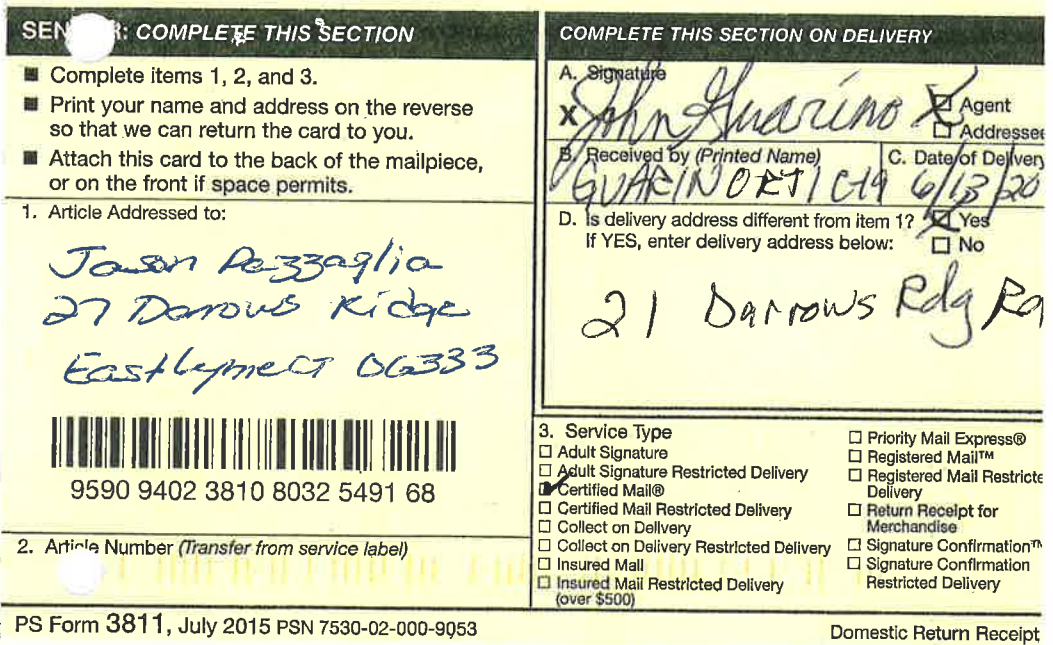 SEN R: COMPLETE THIS SECTION
■ Complete items 1, 2, and 3.
■ Print your name and address on the reverse
so that we can return the card to you.
■ Attach this card to the back of the mailpiece,
or on the front if space permits.
1. Article Addressed to:
Jason Pezzaglia
27 Darrows Ridge
East Lyme CT 06333
9590 9402 3810 8032 5491 68
2. Article Number (Transfer from service label)
PS Form 3811, July 2015 PSN 7530-02-000-9053
COMPLETE THIS SECTION ON DELIVERY
A. Signature
X John Guarino
☒ Agent
☐ Addressee
B. Received by (Printed Name)
C. Date of Delivery
6/13/20
D. Is delivery address different from item 1? ☒ Yes
If YES, enter delivery address below: ☐ No
21 Darrows Rdg Rd
3. Service Type
☐ Adult Signature
☐ Adult Signature Restricted Delivery
☑ Certified Mail®
☐ Certified Mail Restricted Delivery
☐ Collect on Delivery
☐ Collect on Delivery Restricted Delivery
☐ Insured Mail
☐ Insured Mail Restricted Delivery
(over $500)
☐ Priority Mail Express®
☐ Registered Mail™
☐ Registered Mail Restricte
Delivery
☐ Return Receipt for
Merchandise
☐ Signature Confirmation™
☐ Signature Confirmation
Restricted Delivery
Domestic Return Receipt